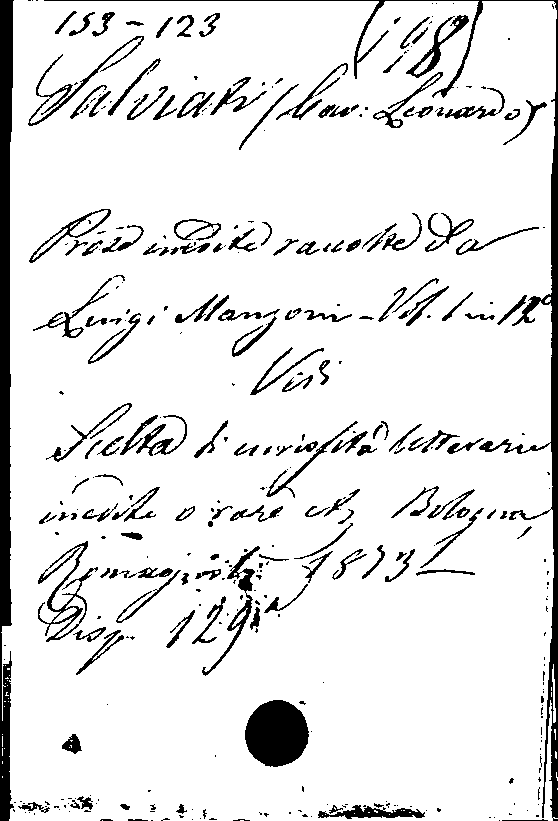 153-123 (198)
Salviati (Cav: Leonardo)
Prose inedite raccolte da
Luigi Manzoni - Vol. 1 in 12º
Vedi
Scelta di curiosità letterarie
inedite o rare etc. Bologna,
Romagnoli 1873
Disp. 129ª